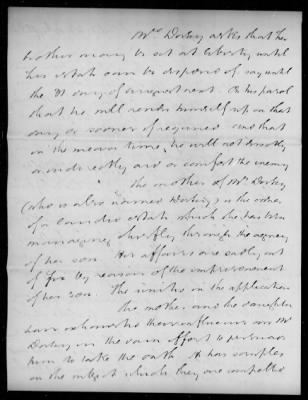 Mrs Dorsey asks that her
brother may be set at liberty until
his estate can be disposed of say until
the 31 day of August next. On his parol
that he will render himself up on that
day or sooner if required and that
in the mean time, he will not directly
or indirectly aid or comfort the enemy
The mother of Mr Dorsey
(who is also named Dorsey) is the owner
of a landed estate which she has been
managing chiefly through the agency
of her son. Her affairs are sadly out
of fix by reason of the imprisonment
of her son. She unites in the application
The mother and the daughter
have exhausted their influence on Mr
Dorsey in the vain effort to persuade
him to take the oath. He has scruples
on the subject which they are compelled